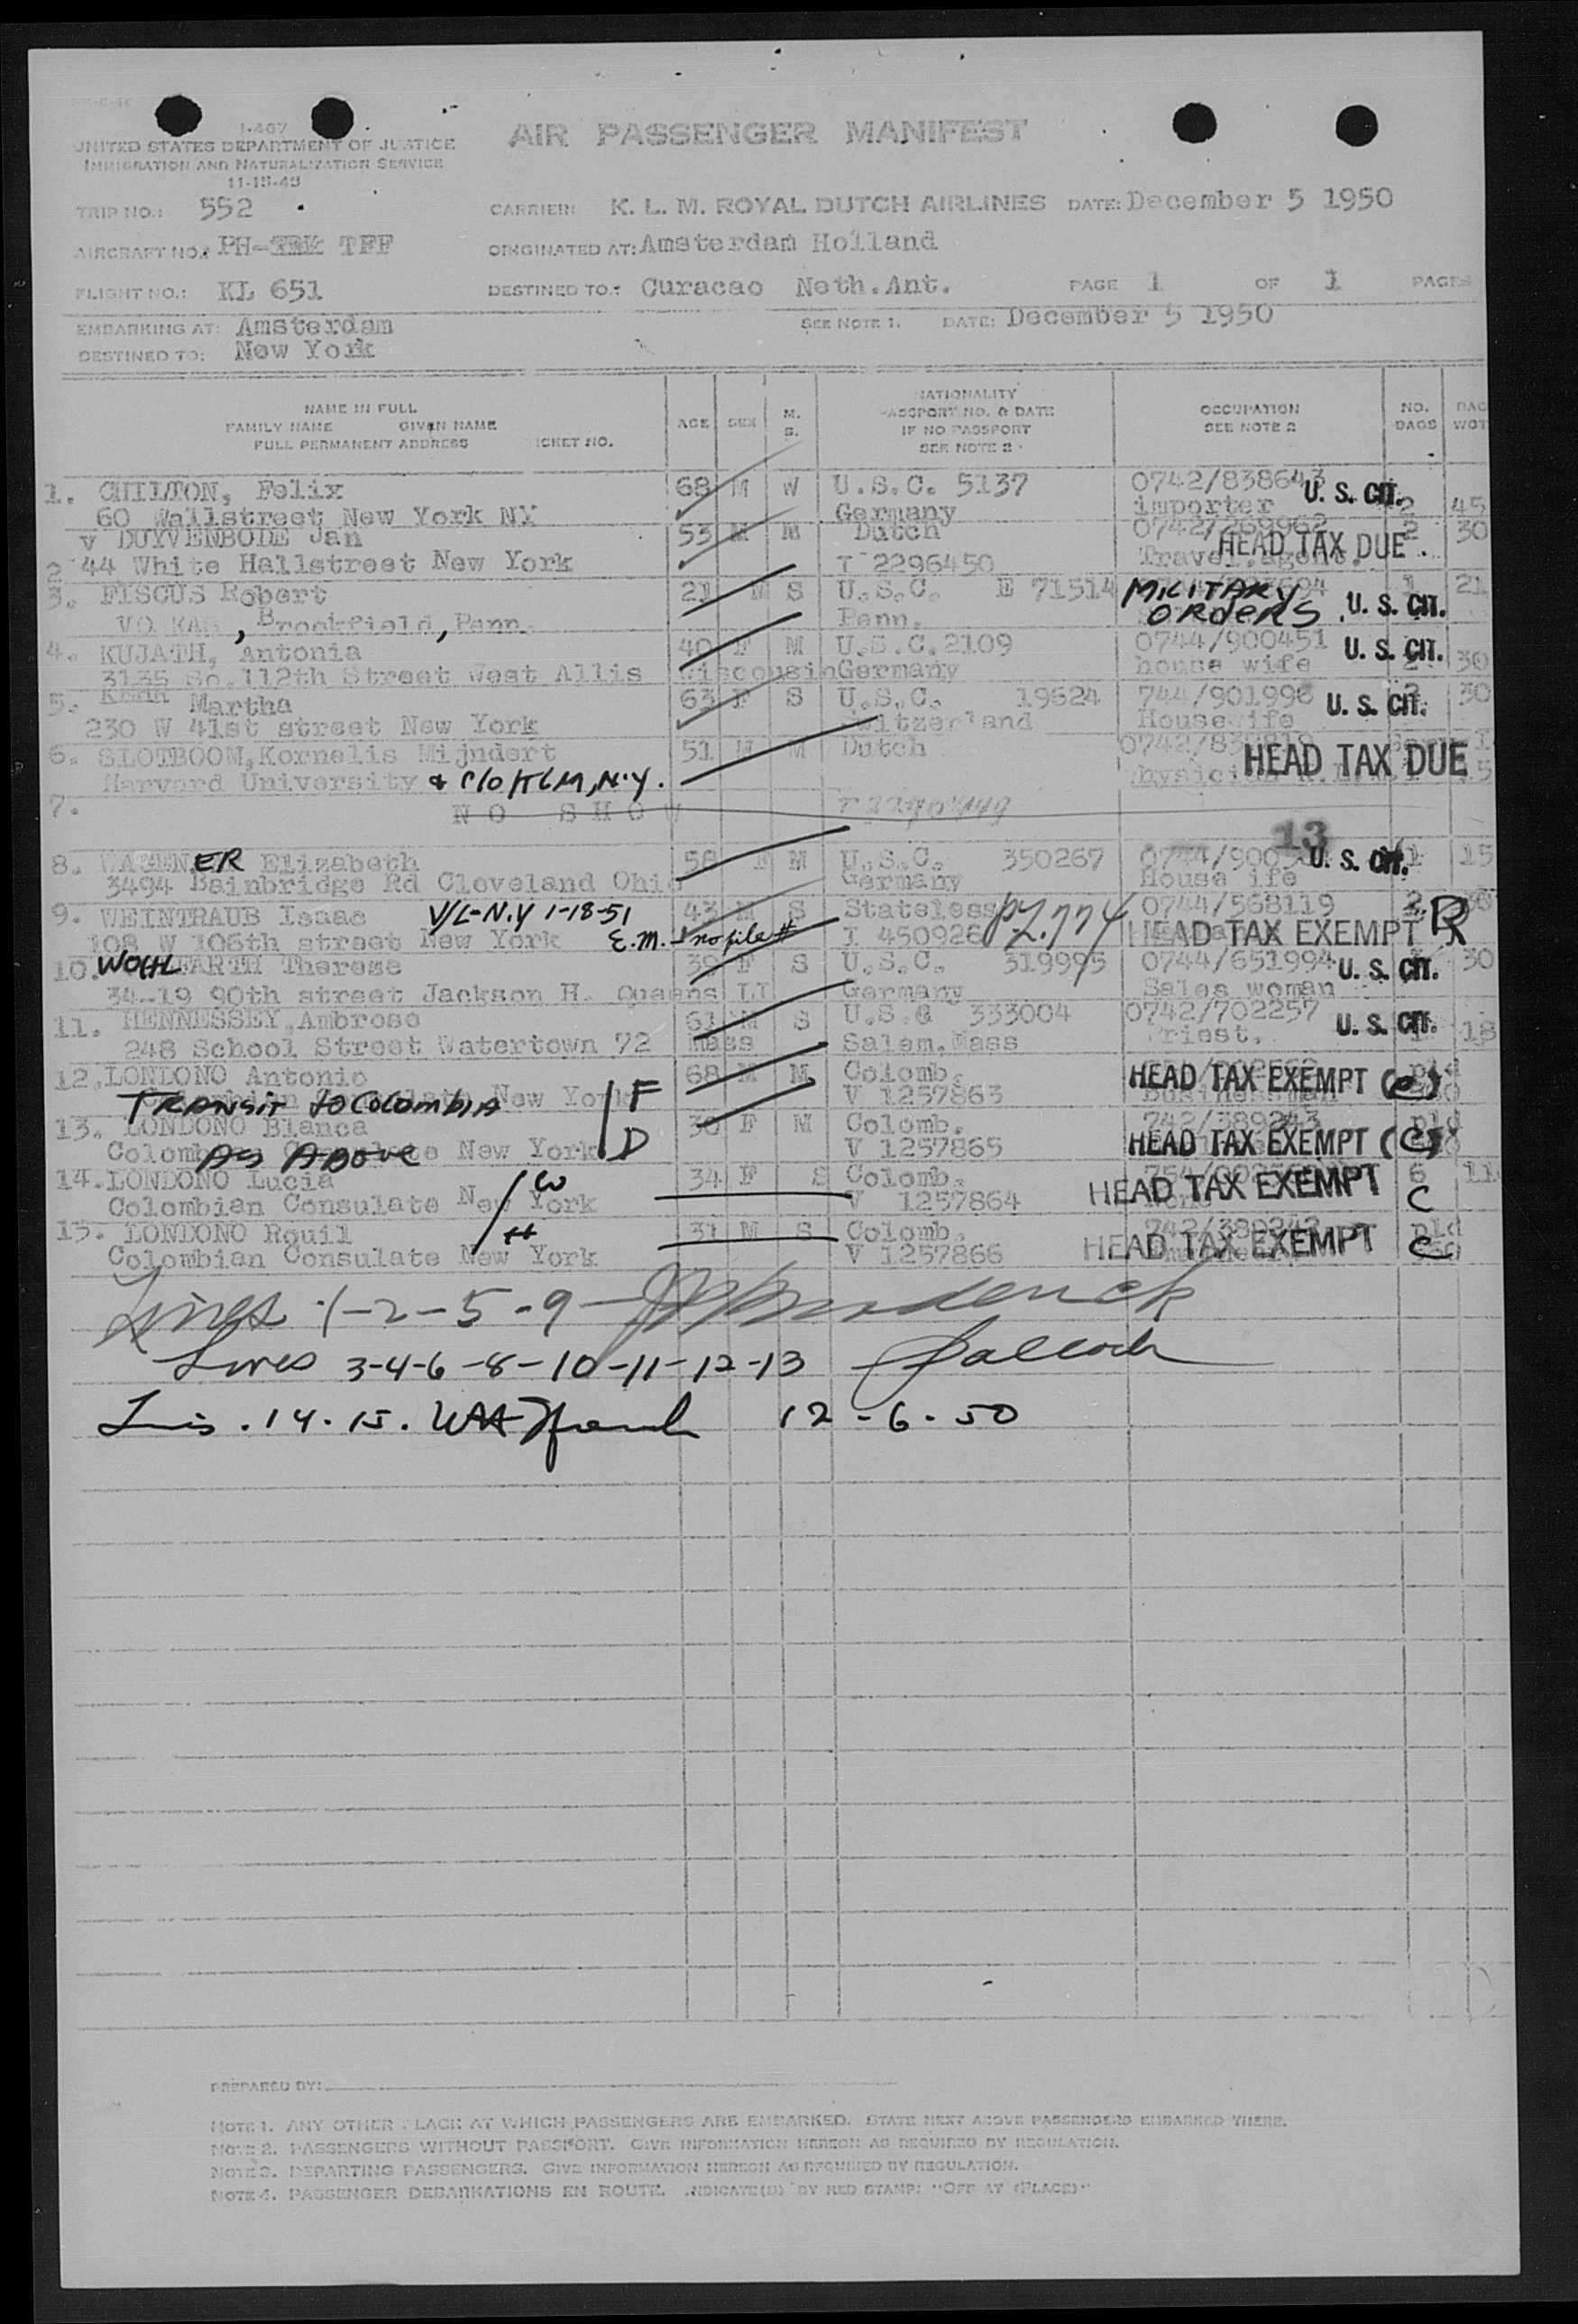 I-467
UNITED STATES DEPARTMENT OF JUSTICE
IMMIGRATION AND NATURALIZATION SERVICE
11-18-49
AIR PASSENGER MANIFEST
TRIP NO.: 552
CARRIER: K. L. M. ROYAL DUTCH AIRLINES DATE: December 5 1950
AIRCRAFT NO.: PH- TFF
ORIGINATED AT: Amsterdam Holland
FLIGHT NO.: KL 651
DESTINED TO: Curacao Neth.Ant. PAGE 1 OF 1 PAGES
EMBARKING AT: Amsterdam
SEE NOTE 1. DATE: December 5 1950
DESTINED TO: New York
NAME IN FULL
FAMILY NAME GIVEN NAME
FULL PERMANENT ADDRESS ICKET NO.
AGE SEX M. S.
NATIONALITY
PASSPORT NO. & DATE
IF NO PASSPORT
SEE NOTE 2
OCCUPATION
SEE NOTE 2
NO. BAGS
BAG WGT
1. CHILTON, Felix 68 M W U.S.C. 5137 0742/838643 U. S. CIT.
60 Wallstreet New York NY Germany importer 2 45
v DUYVENBODE Jan 53 M M Dutch 0742/269962 2 30
2 44 White Hallstreet New York T 2296450 Travel agent. HEAD TAX DUE.
3. FISCUS Robert 21 M S U.S.C. E 71514 MILITARY 1 21
, Brookfield, Penn. Penn. ORDERS. U. S. CIT.
4. KUJATH, Antonia 40 F M U.S.C. 2109 0744/900451 U. S. CIT.
3135 So. 112th Street West Allis Wiscousin Germany house wife 30
5. Martha 63 F S U.S.C. 19624 744/901996 2 30
230 W 41st street New York Switzerland Housewife U. S. CIT.
6. SLOTBOOM, Kornelis Mijndert 51 M M Dutch
Harvard University & c/o KLM, N.Y. HEAD TAX DUE
7. NO SHOW
13
8. WAGENNER Elizabeth 58 F M U.S.C. 350267 U. S. CIT. 1 15
3494 Bainbridge Rd Cleveland Ohio Germany House ife
9. WEINTRAUB Isaac V/L-N.Y 1-18-51 43 M S Stateless 0744/568119 2 30
108 W 106th street New York E.M. - no file # T 450926 HEAD TAX EXEMPT R
10. WOHLFARTH Therese 39 F S U.S.C. 319995 0744/651994 U. S. CIT. 30
34-19 90th street Jackson H. Queens LI Germany Sales woman
11. HENNESSEY, Ambrose 61 M S U.S.C 333004 0742/702257
248 School Street Watertown 72 Mass Salem, Mass Priest. U. S. CIT. 1 18
12. LONDONO Antonio 68 M M Colomb. pld
TRANSIT to COLOMBIA New York F V 1257863 HEAD TAX EXEMPT (C)
13. LONDONO Blanca F M Colomb. 742/389243 pld
As Above New York D V 1257865 HEAD TAX EXEMPT (C)
14. LONDONO Lucia W 34 F S Colomb. 6 11
Colombian Consulate New York V 1257864 HEAD TAX EXEMPT C
15. LONDONO Rouil H 31 M S Colomb. pld
Colombian Consulate New York V 1257866 HEAD TAX EXEMPT C
Lines 1-2-5-9-
Lines 3-4-6-8-10-11-12-13
14.15. 12-6-50
PREPARED BY:
NOTE 1. ANY OTHER PLACE AT WHICH PASSENGERS ARE EMBARKED. STATE NEXT ABOVE PASSENGERS EMBARKED THERE.
NOTE 2. PASSENGERS WITHOUT PASSPORT. GIVE INFORMATION HEREON AS REQUIRED BY REGULATION.
NOTE 3. DEPARTING PASSENGERS. GIVE INFORMATION HEREON AS REQUIRED BY REGULATION.
NOTE 4. PASSENGER DEBARKATIONS EN ROUTE. INDICATE(D) BY RED STAMP: "OFF AT (PLACE)"